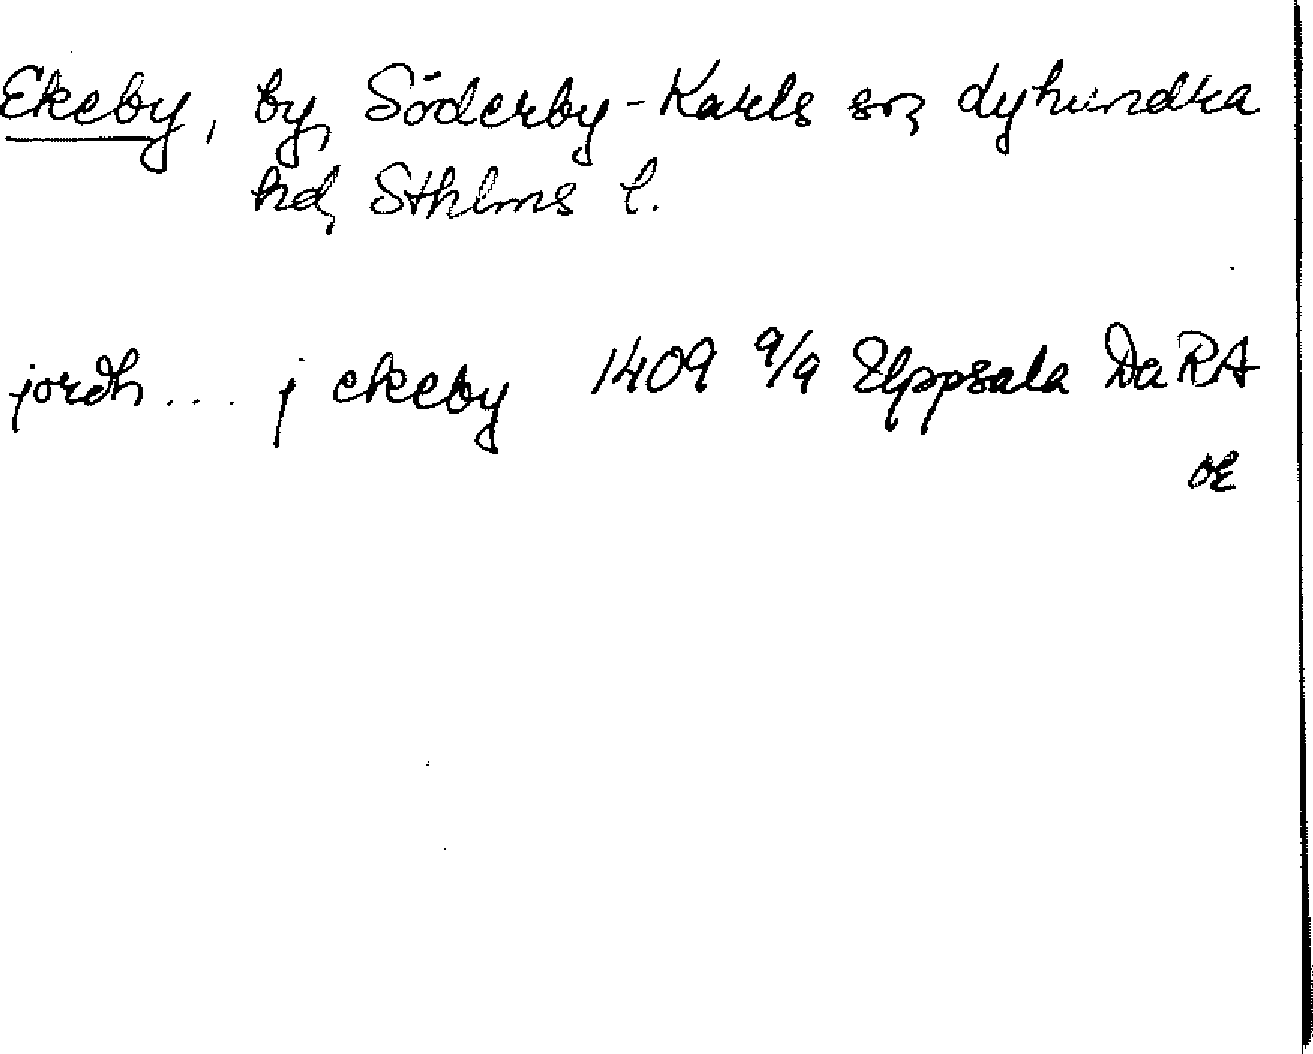 Ekeby, by, Söderby-Karls sn, Lyhundra
hd, Sthlms l.
jordh... j ekeby 1409 9/9 Uppsala Da RA
or